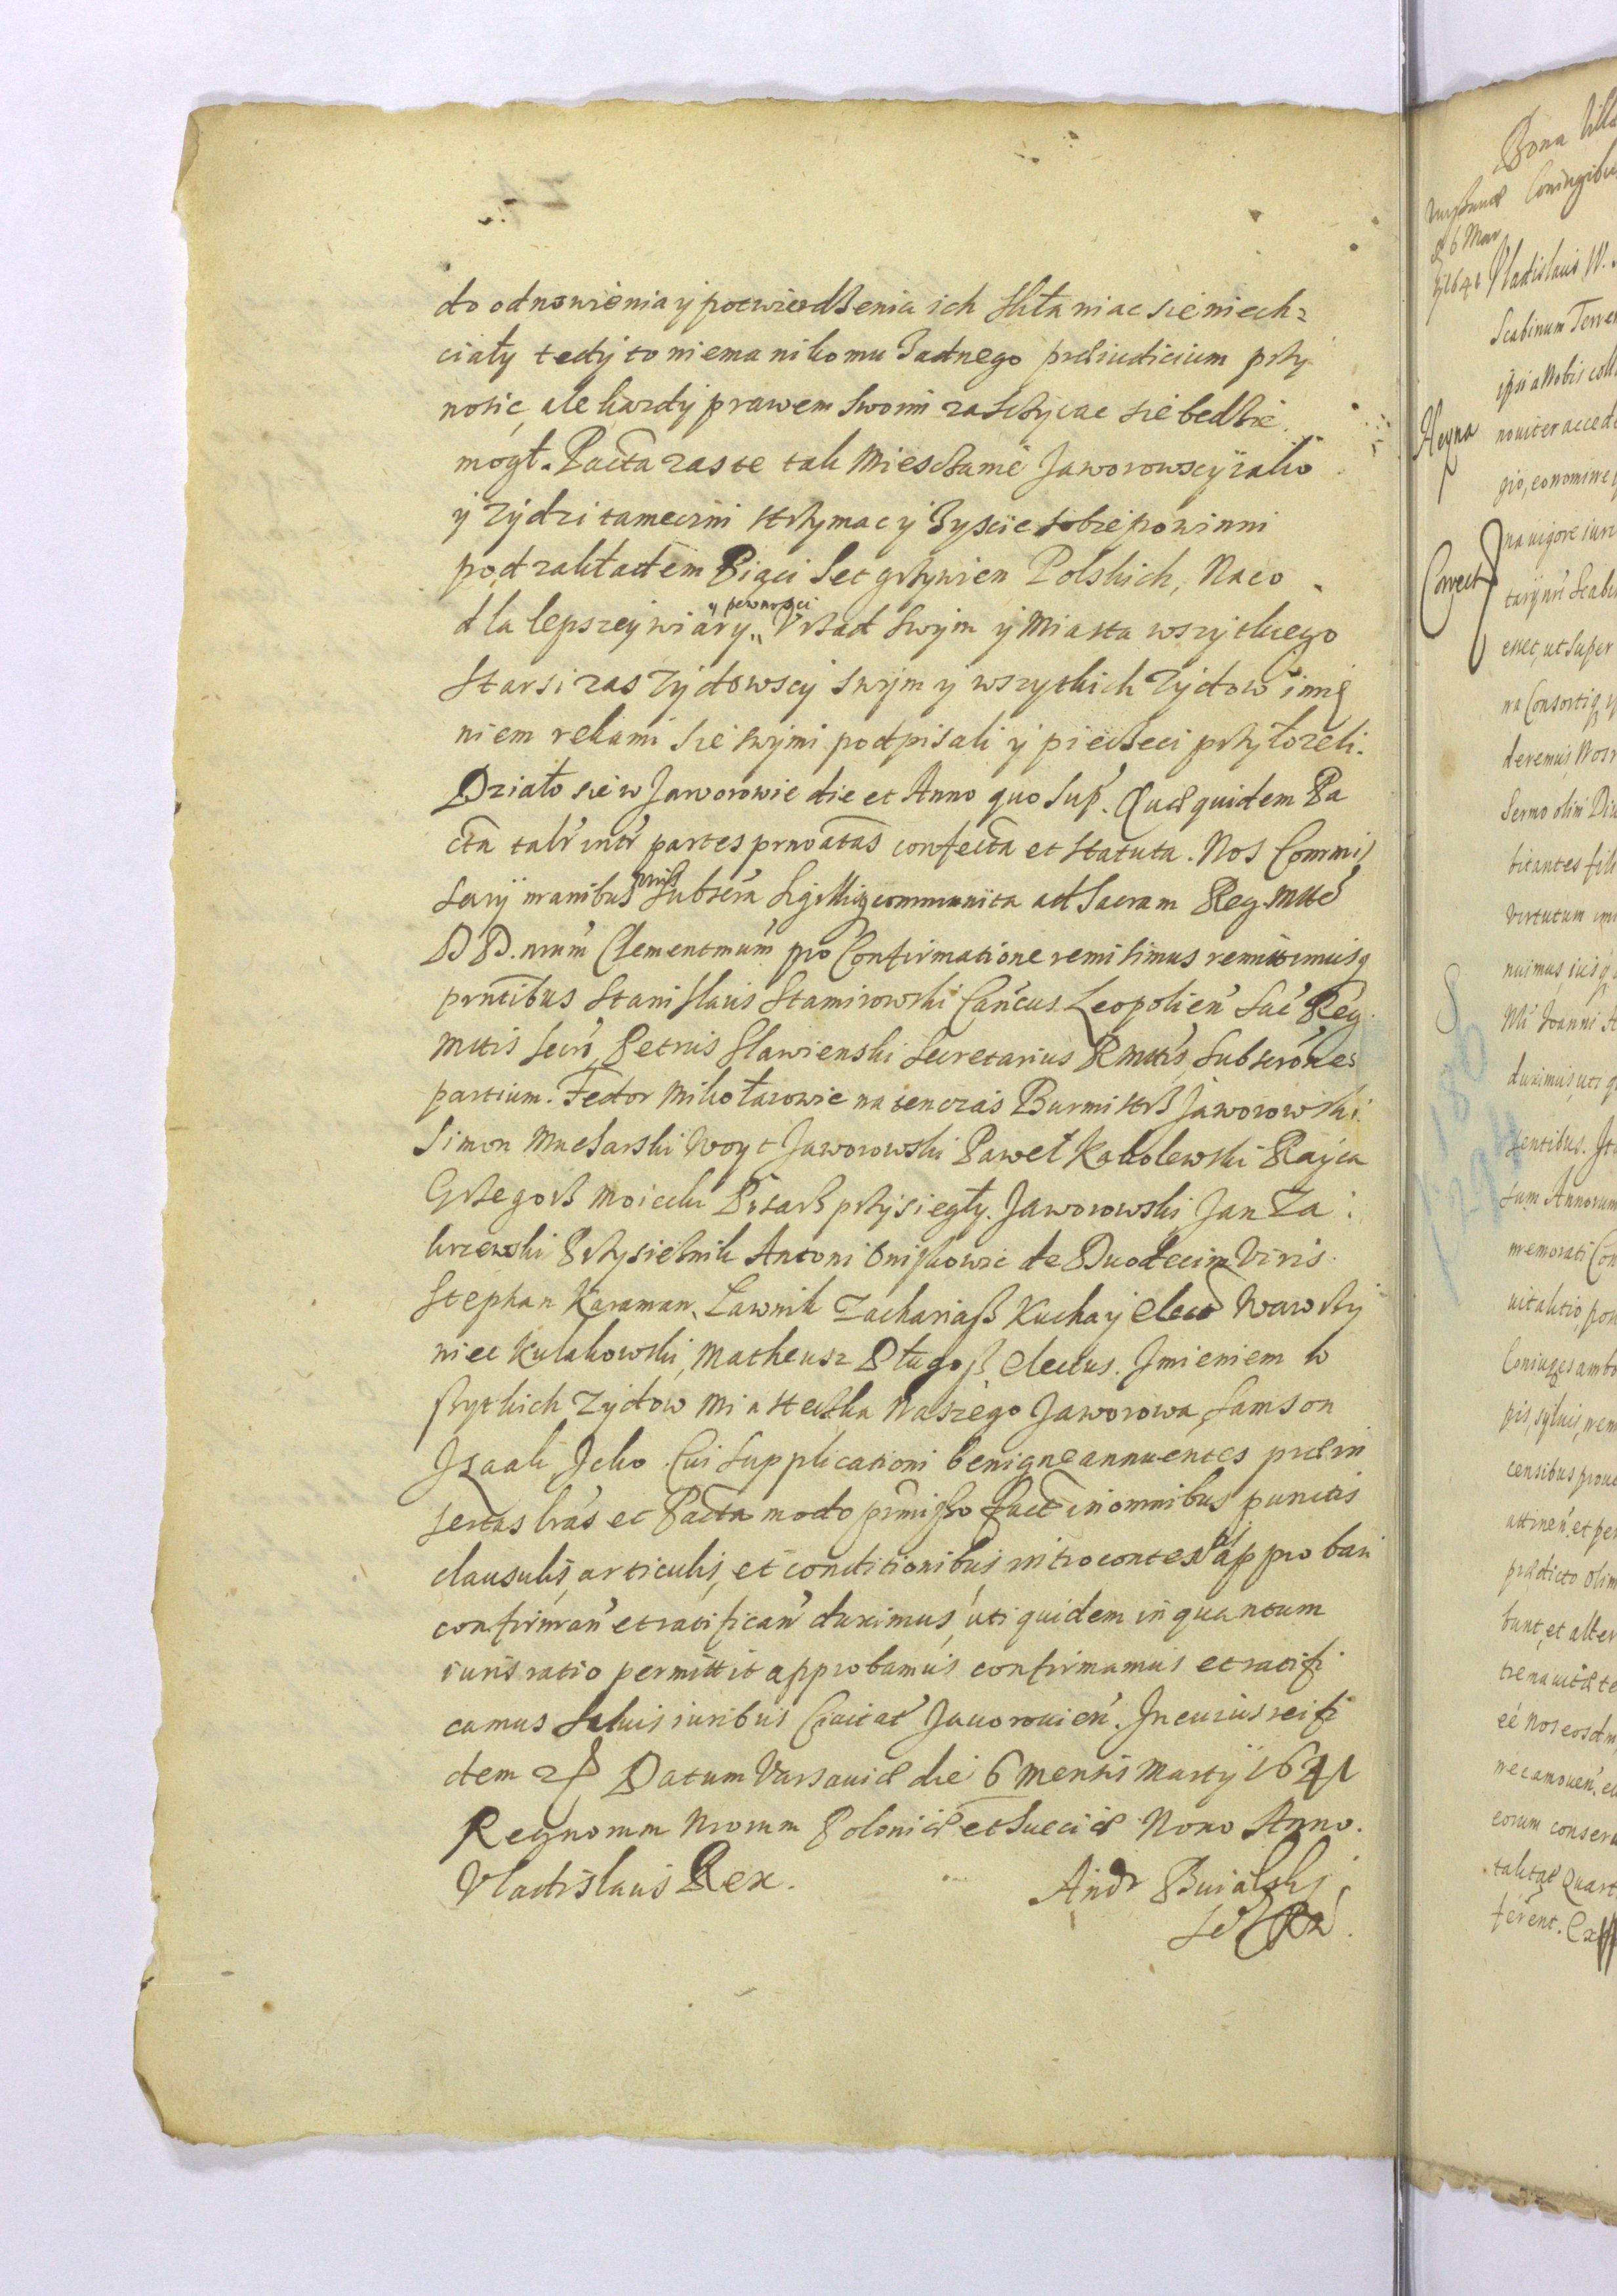 do odnowienia y potwierdzenia ich skłaniac sie niech
ciały tedy to niema nikomu żadnego præiudicium przy
nosic, ale kazdy prawem swoim zasczycac sie bedzie
mogł. Pacta zas te tak Miesczanie Jaworowscy iako
y Zydzi tameczni strzymac y zyscic sobie powinni
pod zakładem Piąci set grzywien Polskich, Naco
dla lepszey wiary y pewnosci Vrząd swym y Miasta wszytkiego
Starsi zas Zydowscy swym y wszytkich Zydow imie
niem rekami sie swymi podpisali y pieczeci przyłozeli.
Działo sie w Jaworowie die et Anno quo sup. Quæ quidem Pa
cta talr intr partes prnoatas confecta et statuta. Nos Commis
sarij manibus nris subscra sigillisq communita ad Sacram Reg. Mtte
D D. nrum Clementmum pro Confirmatione remisimus remittimusq
prntibus Stanislaus Stamirowski Cancus Leopolien Sac Reg.
Mttis secr, Petrus Slawienski Secretarius R Mttis, Subscrones
partium. Fedor Mikołaiowic na tenczas Burmistrz Jaworowski
Simon Woyt Jaworowski Paweł Kobolewski Rayca
Grzegorz Moicek Pisarz przysiegły. Jaworowski Jan Za
krzewski Przysieżnik Antoni de Duodecim Viris
Stephan Karaman, Ławnik Zachariasz Kucha y elect Wawrzy
niec Kulakowski, Matheusz Długosz, electus. Jmieniem w
szytkich Zydow Miasteczka Naszego Jaworowa, Samson
Jzaak Jcko. Cui supplicationi benigne annuentes præin
sertas lras et Pacta modo prmisso fact in omnibus punctis
clausulis, articulis, et conditionibus introcontes approban
confirman et ratifican duximus, uti quidem in quantum
iuris ratio permittit approbamus confirmamus et ratifi
camus Saluis iuribus Ciuitat Jauorouien. Jn cuius rei fi
dem Datum Varsauiæ die 6 Mensis Martij 1641
Regnorum Nrorum Poloniæ et Sueciæ Nono Anno.
Vladislaus Rex.
Andr Buialski
Bona Villa
Coniugibus
6 Mar
1641 Vladislaus IV.
Scabinum Terren
ipsi a Nobis coll
Regna nouiter accede
gio, eo nomine
Correct na uigore iuri
esset, ut super
deremus, Nos
Sermo olim Diu
bitantes fili
virtutum
sentibus. It
sum Annorum
memorati Con
Coniuges ambo
censibus prou
attinen. et per
prædicto olim
bunt, et alter
nec amouen. eu
eorum conseru
ferent.